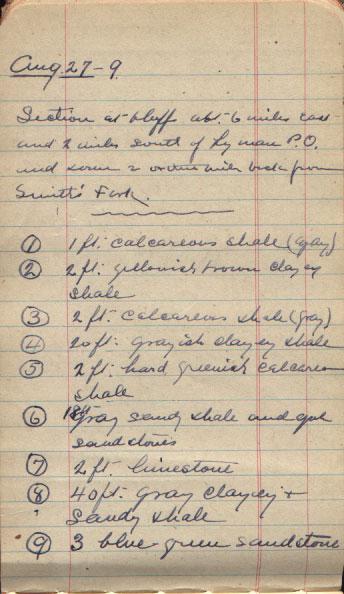 Aug. 27-9.
Section at bluff abt. 6 miles east
and 2 miles south of Lyman P.O.
and some 2 or three miles back from
Smith's Fork.
① 1 ft. calcareous shale (gray)
② 2 ft. yellowish brown clayey
shale
③ 2 ft. calcareous shale (gray)
④ 20 ft. grayish clayey shale
⑤ 2 ft. hard greenish calcareous
shale
⑥ 18 ft gray sandy shale and
sandstones
⑦ 2 ft. limestone
⑧ 40 ft. gray clayey +
sandy shale
⑨ 3 blue green sandstone